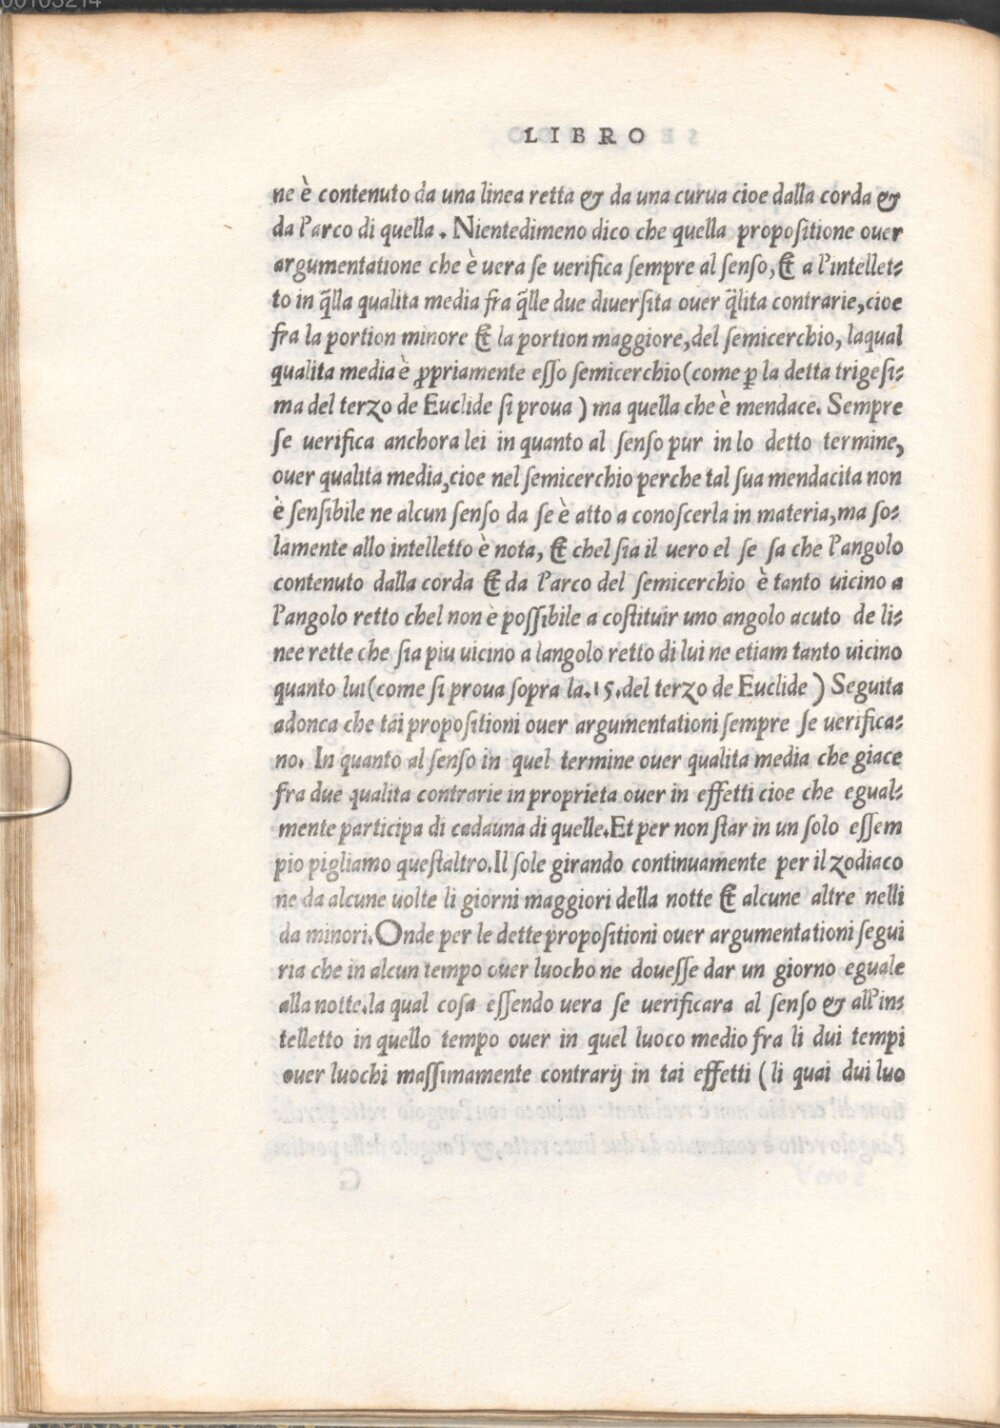 00103214
LIBRO
ne è contenuto da una linea retta & da una curua cioe dalla corda &
da l'arco di quella. Nientedimeno dico che quella propoſitione ouer
argumentatione che è uera ſe uerifica ſempre al ſenſo, & a l'intellet⸗
to in q̃lla qualita media fra q̃lle due diuerſita ouer q̃lita contrarie, cioe
fra la portion minore & la portion maggiore, del ſemicerchio, laqual
qualita media è ꝓpriamente eſſo ſemicerchio (come ꝑ la detta trigeſi⸗
ma del terzo de Euclide ſi proua) ma quella che è mendace. Sempre
ſe uerifica anchora lei in quanto al ſenſo pur in lo detto termine,
ouer qualita media, cioe nel ſemicerchio perche tal ſua mendacita non
è ſenſibile ne alcun ſenſo da ſe è atto a conoſcerla in materia, ma ſo⸗
lamente allo intelletto è nota, & chel ſia il uero el ſe ſa che l'angolo
contenuto dalla corda & da l'arco del ſemicerchio è tanto uicino a
l'angolo retto chel non è poſſibile a coſtituir uno angolo acuto de li⸗
nee rette che ſia piu uicino a langolo retto di lui ne etiam tanto uicino
quanto lui (come ſi proua ſopra la. 15. del terzo de Euclide) Seguita
adonca che tai propoſitioni ouer argumentationi ſempre ſe uerifica⸗
no. In quanto al ſenſo in quel termine ouer qualita media che giace
fra due qualita contrarie in proprieta ouer in effetti cioe che egual⸗
mente participa di cadauna di quelle. Et per non ſtar in un ſolo eſſem
pio pigliamo queſtaltro. Il ſole girando continuamente per il zodiaco
ne da alcune uolte li giorni maggiori della notte & alcune altre nelli
da minori. Onde per le dette propoſitioni ouer argumentationi ſegui
ria che in alcun tempo ouer luocho ne doueſſe dar un giorno eguale
alla notte. la qual coſa eſſendo uera ſe uerificara al ſenſo & all'in⸗
telletto in quello tempo ouer in quel luoco medio fra li dui tempi
ouer luochi maſſimamente contrarij in tai effetti (li quai dui luo